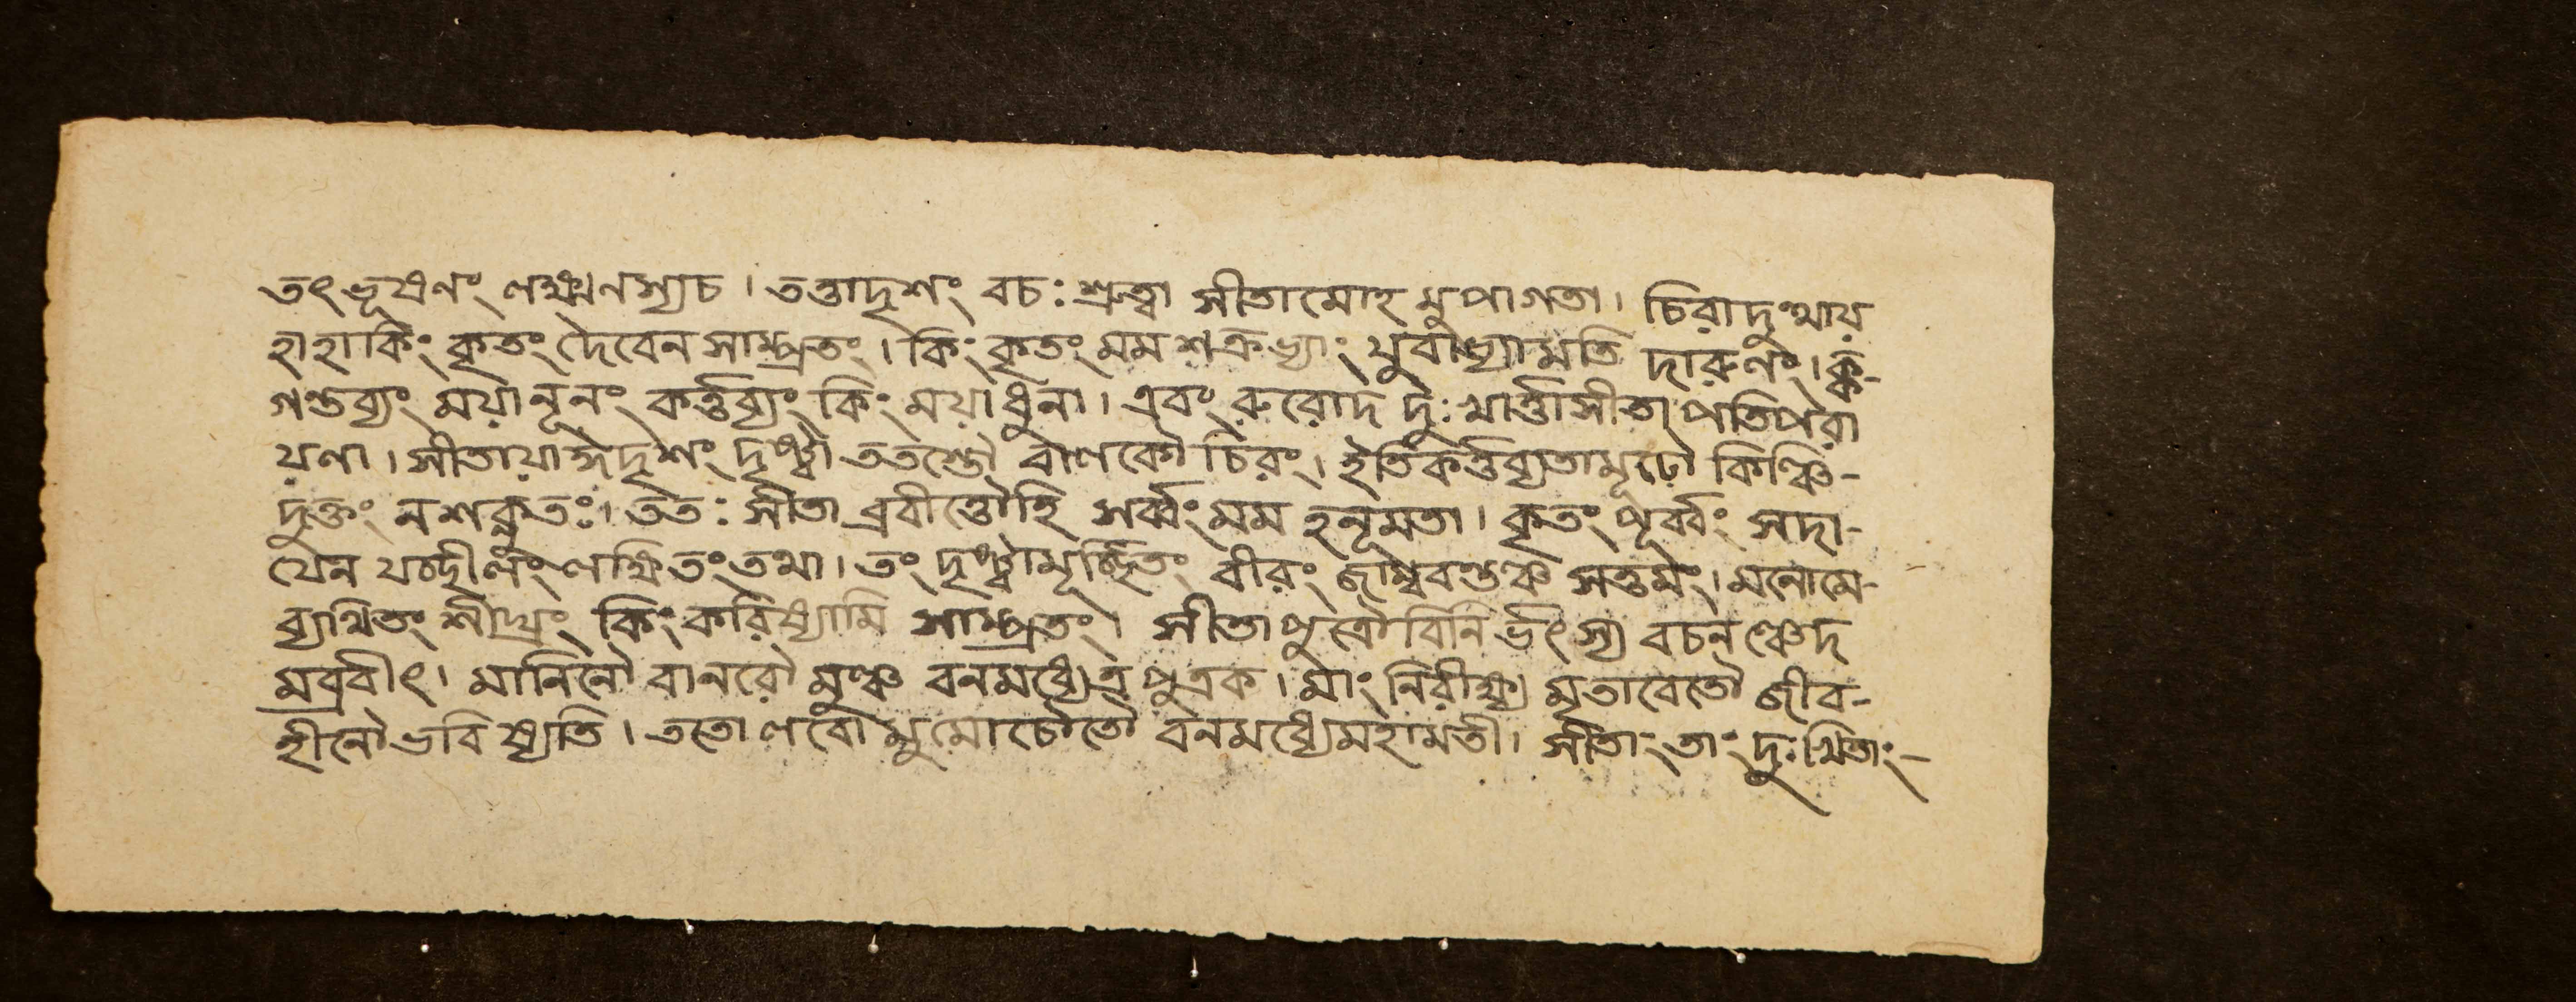 তৎ ভূষণং লক্ষ্মণস্যচ । তত্তাদৃশং বচঃ শ্রুত্বা সীতামোহ মুপাগতা । চিরাদুত্থায়
হাহাকিং কৃতং দৈবেন সাম্প্রতং । কিং কৃতং মম শত্রুভ্যাং যুবাভ্যামতি দারুণং । ক্ক-
গন্তব্যং ময়ানূনং কর্ত্তব্যং কিং ময়াধুনা । এবং রুরোদ দুঃখার্ত্তাসীতা পতিপরা
য়ণা । সীতায়াঈদৃশং দৃষ্ট্বা ততস্তৌ বালকৌ চিরং । ইতিকর্ত্তব্যতামূঢৌ কিঞ্চি-
দুক্তং নশক্নুতঃ । ততঃ সীতা ব্রবীত্তৌহি সর্ব্বং মম হনূমতা । কৃতং পূর্ব্বং সদা-
যেন লক্ষিতং তথা । তং দৃষ্ট্বামূর্চ্ছিতং বীরং জাম্ববন্তঞ্চ সত্তমং । মনোমে-
ব্যথিতং শীঘ্রং কিং করিষ্যামি সাম্প্রতং । সীতা পুত্রৌ বিনির্ভৎস্য বচনঞ্চেদ
মব্রবীৎ । মানিনৌ বানরৌ মুঞ্চ বনমধ্যেত্র পুত্রক । মাং নিরীক্ষ্য মৃতাবেতৌ জীব-
হীনৌ ভবিষ্যতি । ততো লবো মুমোচৌতৌ বনমধ্যেমহামতী । সীতাং তাং দুঃখিতাং-